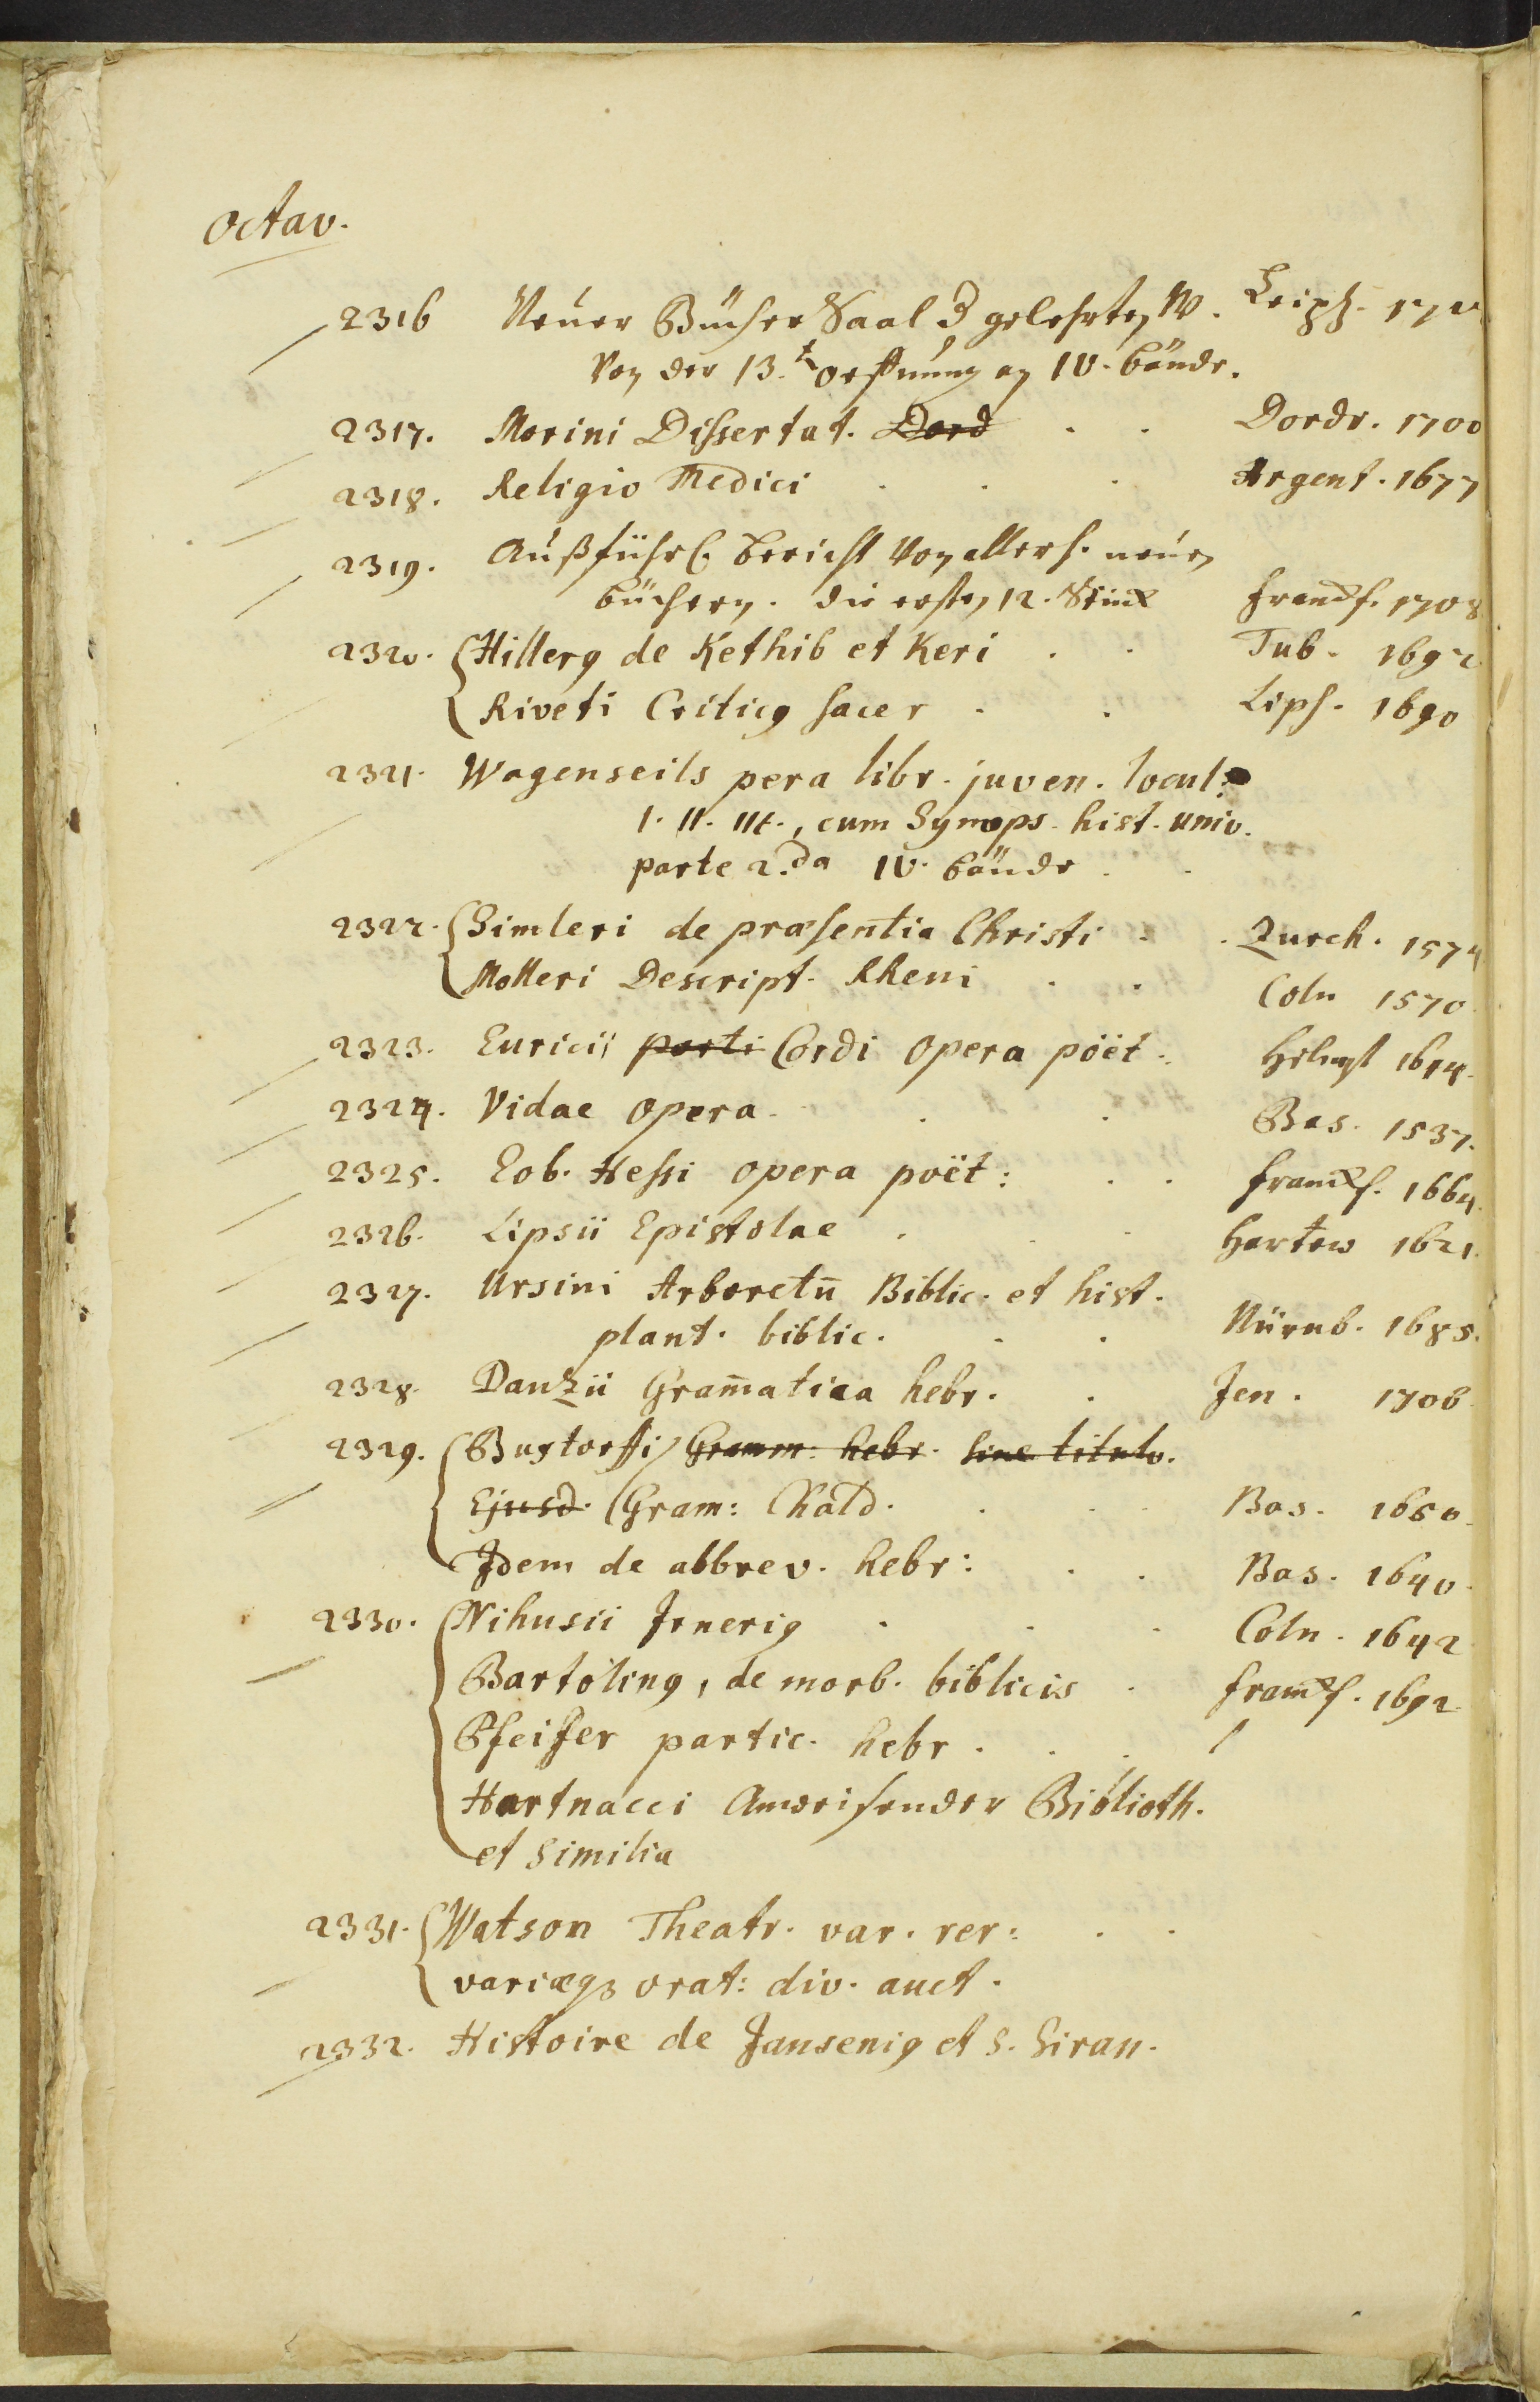 Octav.
2316 Neuer Bücher Saal d gelehrten W. Leipz.
Von der 13.t oeffnung an IV. bände.
2317. Morini Dissertat. Dord . . Dordr. 1700
2318. Religio Medici . . . Argent. 1677
2319. Außführl. bericht Von allerh. neuen
büchern. die ersten 12. Stück Franckf. 1708
2320. Hillerus de Kethib et Keri . . Tub. 1692
Riveti Criticus sacer . . Lips. 1690
2321. Wagenseils pera libr. juven. locul:
I. II. III., cum Synops. hist. univ.
parte 2.da IV. bände . .
2322. Simleri de præsentia Christi . . Zurch. 1574
Molleri Descript. Rheni . . Coln 1570
2323. Euricii porti Cordi opera poët. Helmst 1614.
2324. Vidae opera . . . Bas. 1537.
2325. Eob. Hessi opera poët: . . Franckf. 1664.
2326. Lipsii Epistolae . . . 1621.
2327. Ursini Arboretu̅ Biblic. et hist.
plant. biblic. . . Nürnb. 1685.
2328. Danzii Gram̅atica hebr. . Jen. 1706
2329. Buxtorffi Gramm: hebr. sine titulo.
Ejusd. Gram: Chald. . . . Bas. 1650.
Idem de abbrev. hebr: . . Bas. 1640.
2330. Nihusii Irnerius . . . Coln. 1642
Bartolinus, de morb. biblicis . Franckf. 1692
Pfeiffer partic. hebr. . .
Hartnacci Anweisender Biblioth.
et similia
2331. Watson Theatr. var. rer: . .
variæq3 orat: div. auct.
2332. Histoire de Jansenius et S. Siran.